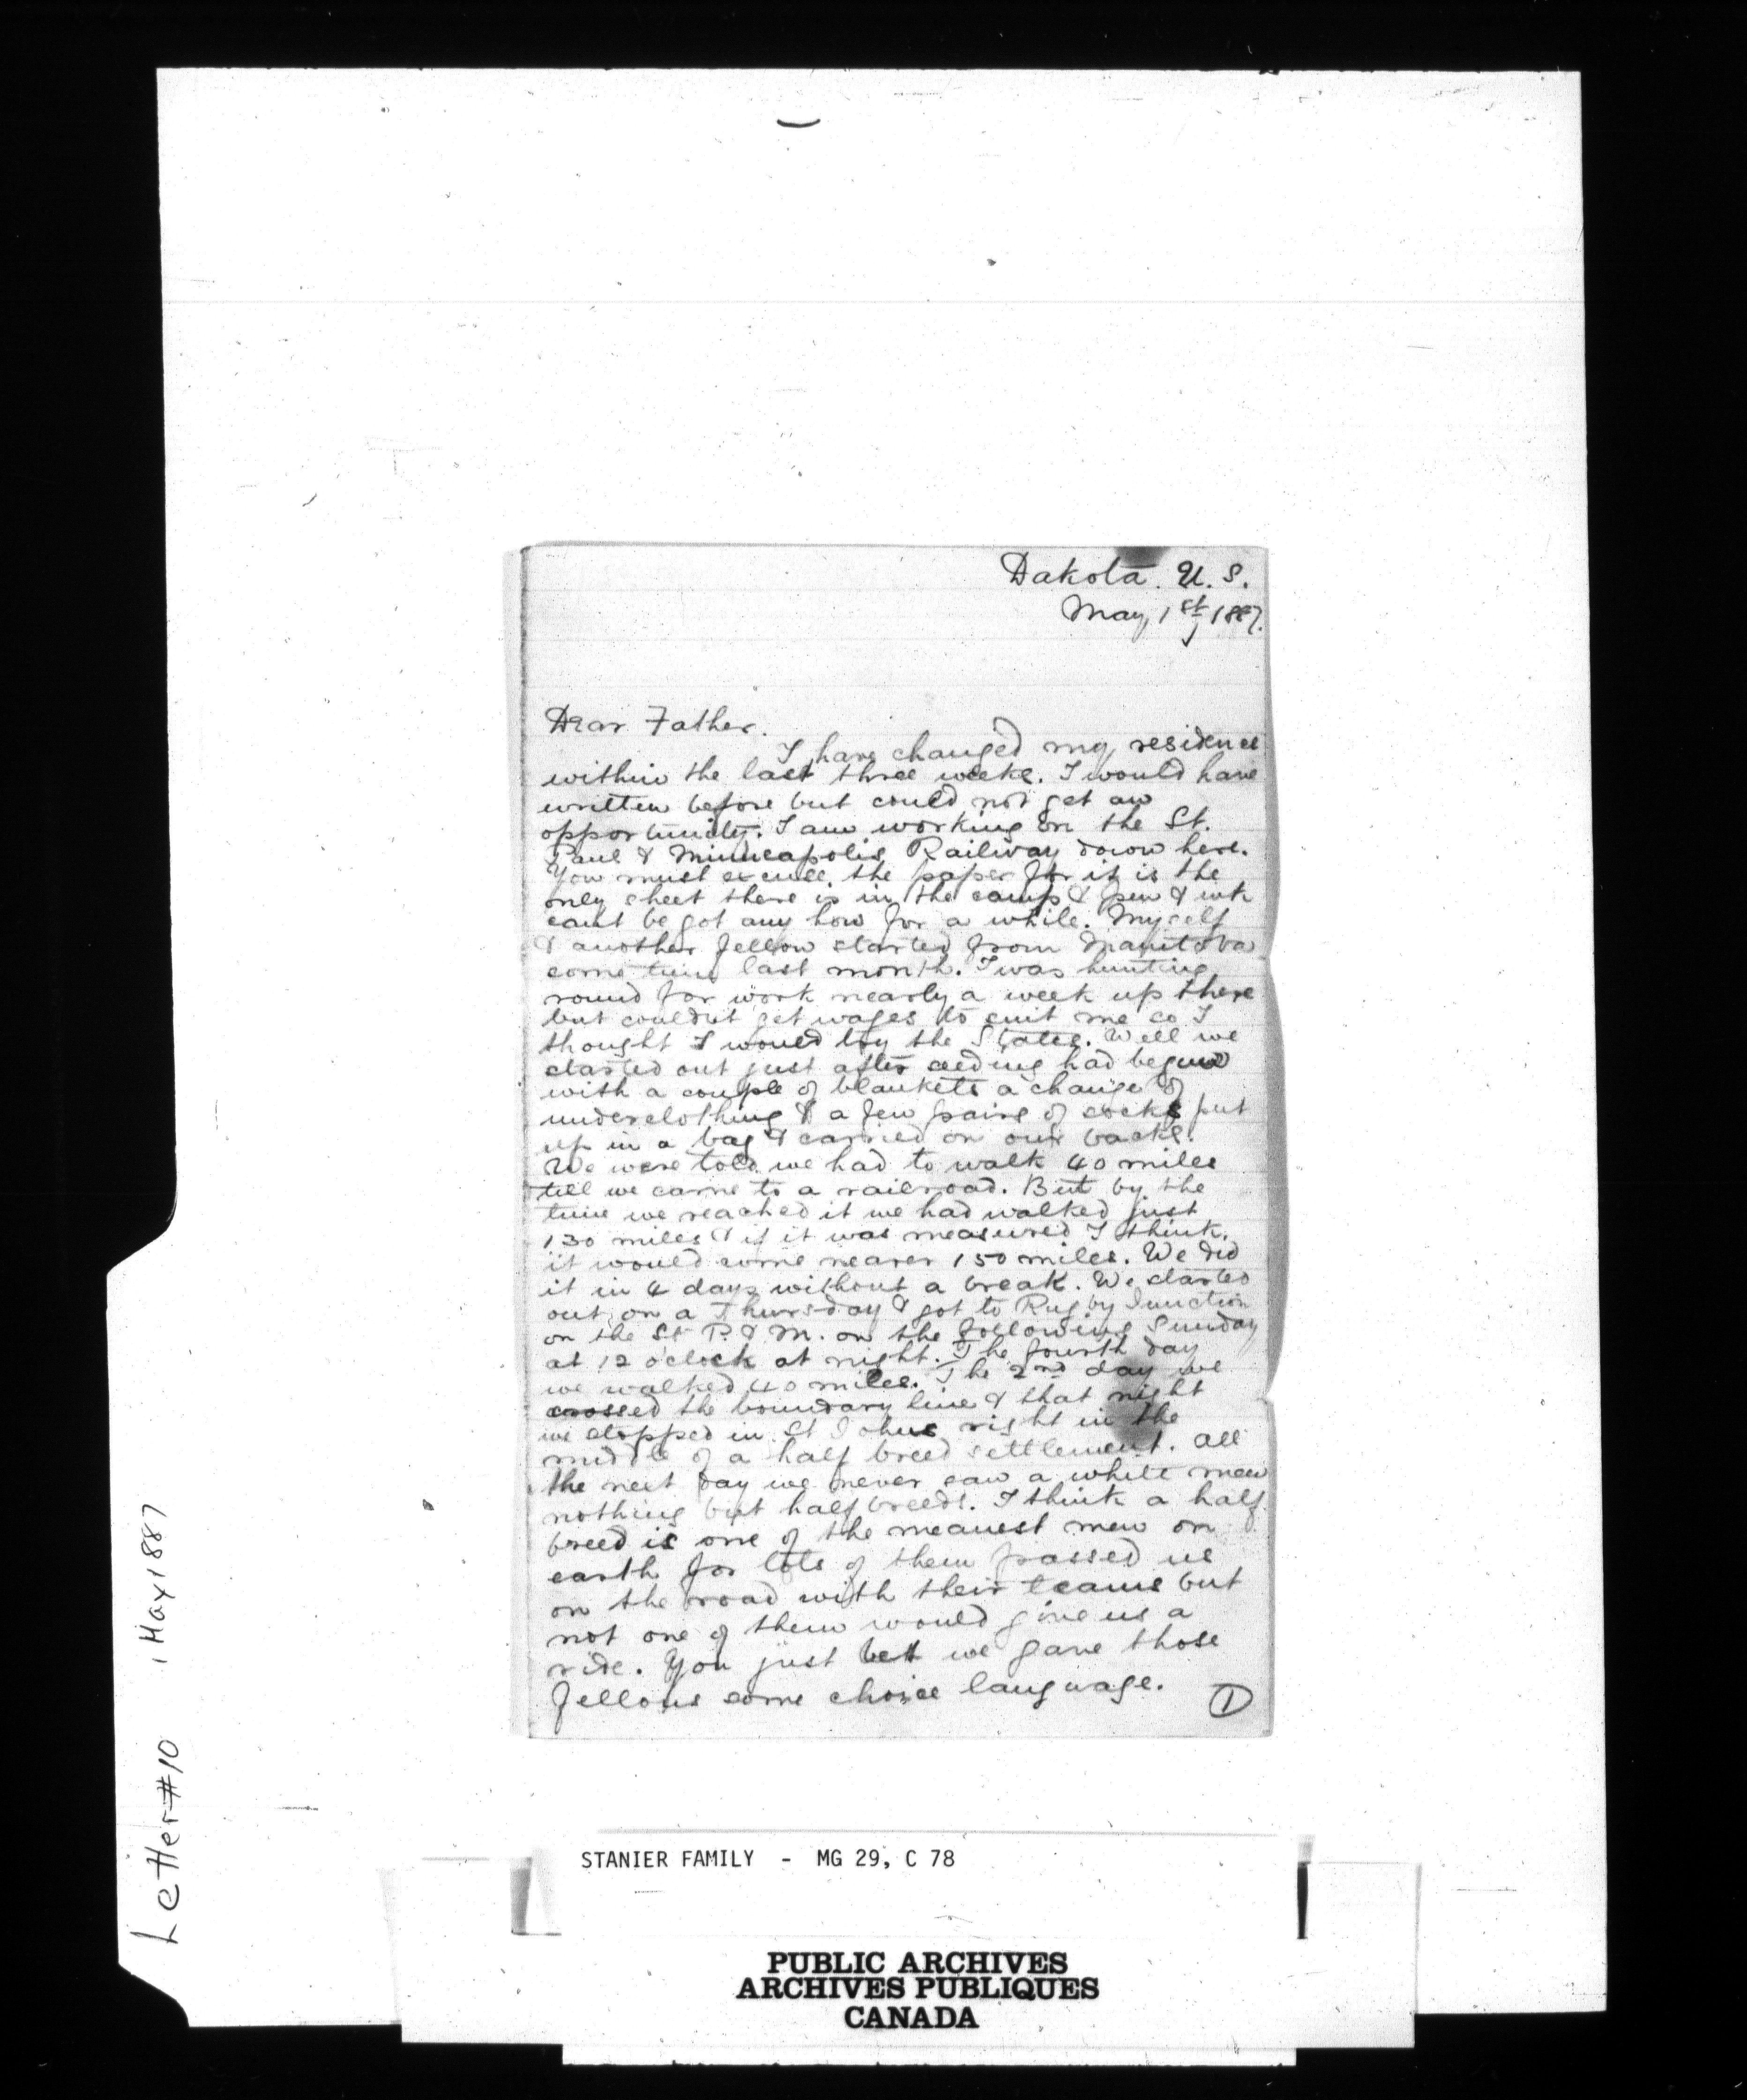 Dakota. U. S.
May, 1st, 1887.
Dear Father.
I have changed my residence
within the last three weeks. I would have
written before but could not get an
opportunity. I am working on the St.
Paul & Minneapolis Railway down here.
You must excuse the paper for it is the
only sheet there is in the camp & pen & ink
cant be got any how for a while. Myself
& another fellow started from Manitoba
some time last month. I was hunting
round for work nearly a week up there
but couldnt get wages to suit me so I
thought I would try the States. Well we
started out just after seeding had begun
with a couple of blankets a change of
underclothing & a few pairs of socks put
up in a bag & carried on our backs.
We were told we had to walk 40 miles
till we came to a railroad. But by the
time we reached it we had walked just
130 miles & if it was measured I think
it would come nearer 150 miles. We did
it in 4 days without a break. We started
out on a Thursday & got to Rugby Junction
on the St P. & M. on the following Sunday
at 12 o'clock at night. The fourth day
we walked 40 miles. The 2nd day we
crossed the boundary line & that night
we stopped in St Johns right in the
middle of a half breed settlement. all
the next day we never saw a white man
nothing but half breeds. I think a half
breed is one of the meanest men on
earth for lots of them passed us
on the road with their teams but
not one of them would give us a
ride. You just bet we gave those
fellows some choice language.
1
Letter #10 1 May 1887
STANIER FAMILY - MG 29, C 78
PUBLIC ARCHIVES
ARCHIVES PUBLIQUES
CANADA